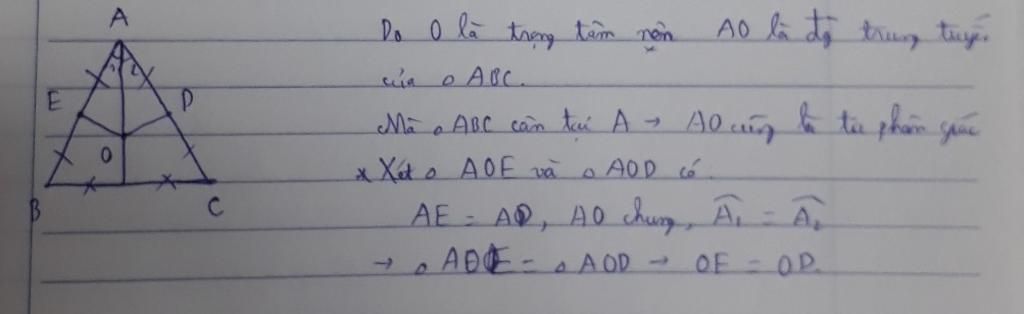 A
1 2
E
D
O
B
C
Do O là trọng tâm nên AO là đg trung tuyến
của △ ABC.
Mà △ ABC cân tại A → AO cũng là tia phân giác
* Xét △ AOE và △ AOD có
AE = AD, AO chung, Â₁ = Â₂
→ △ AOE = △ AOD → OE = OD.